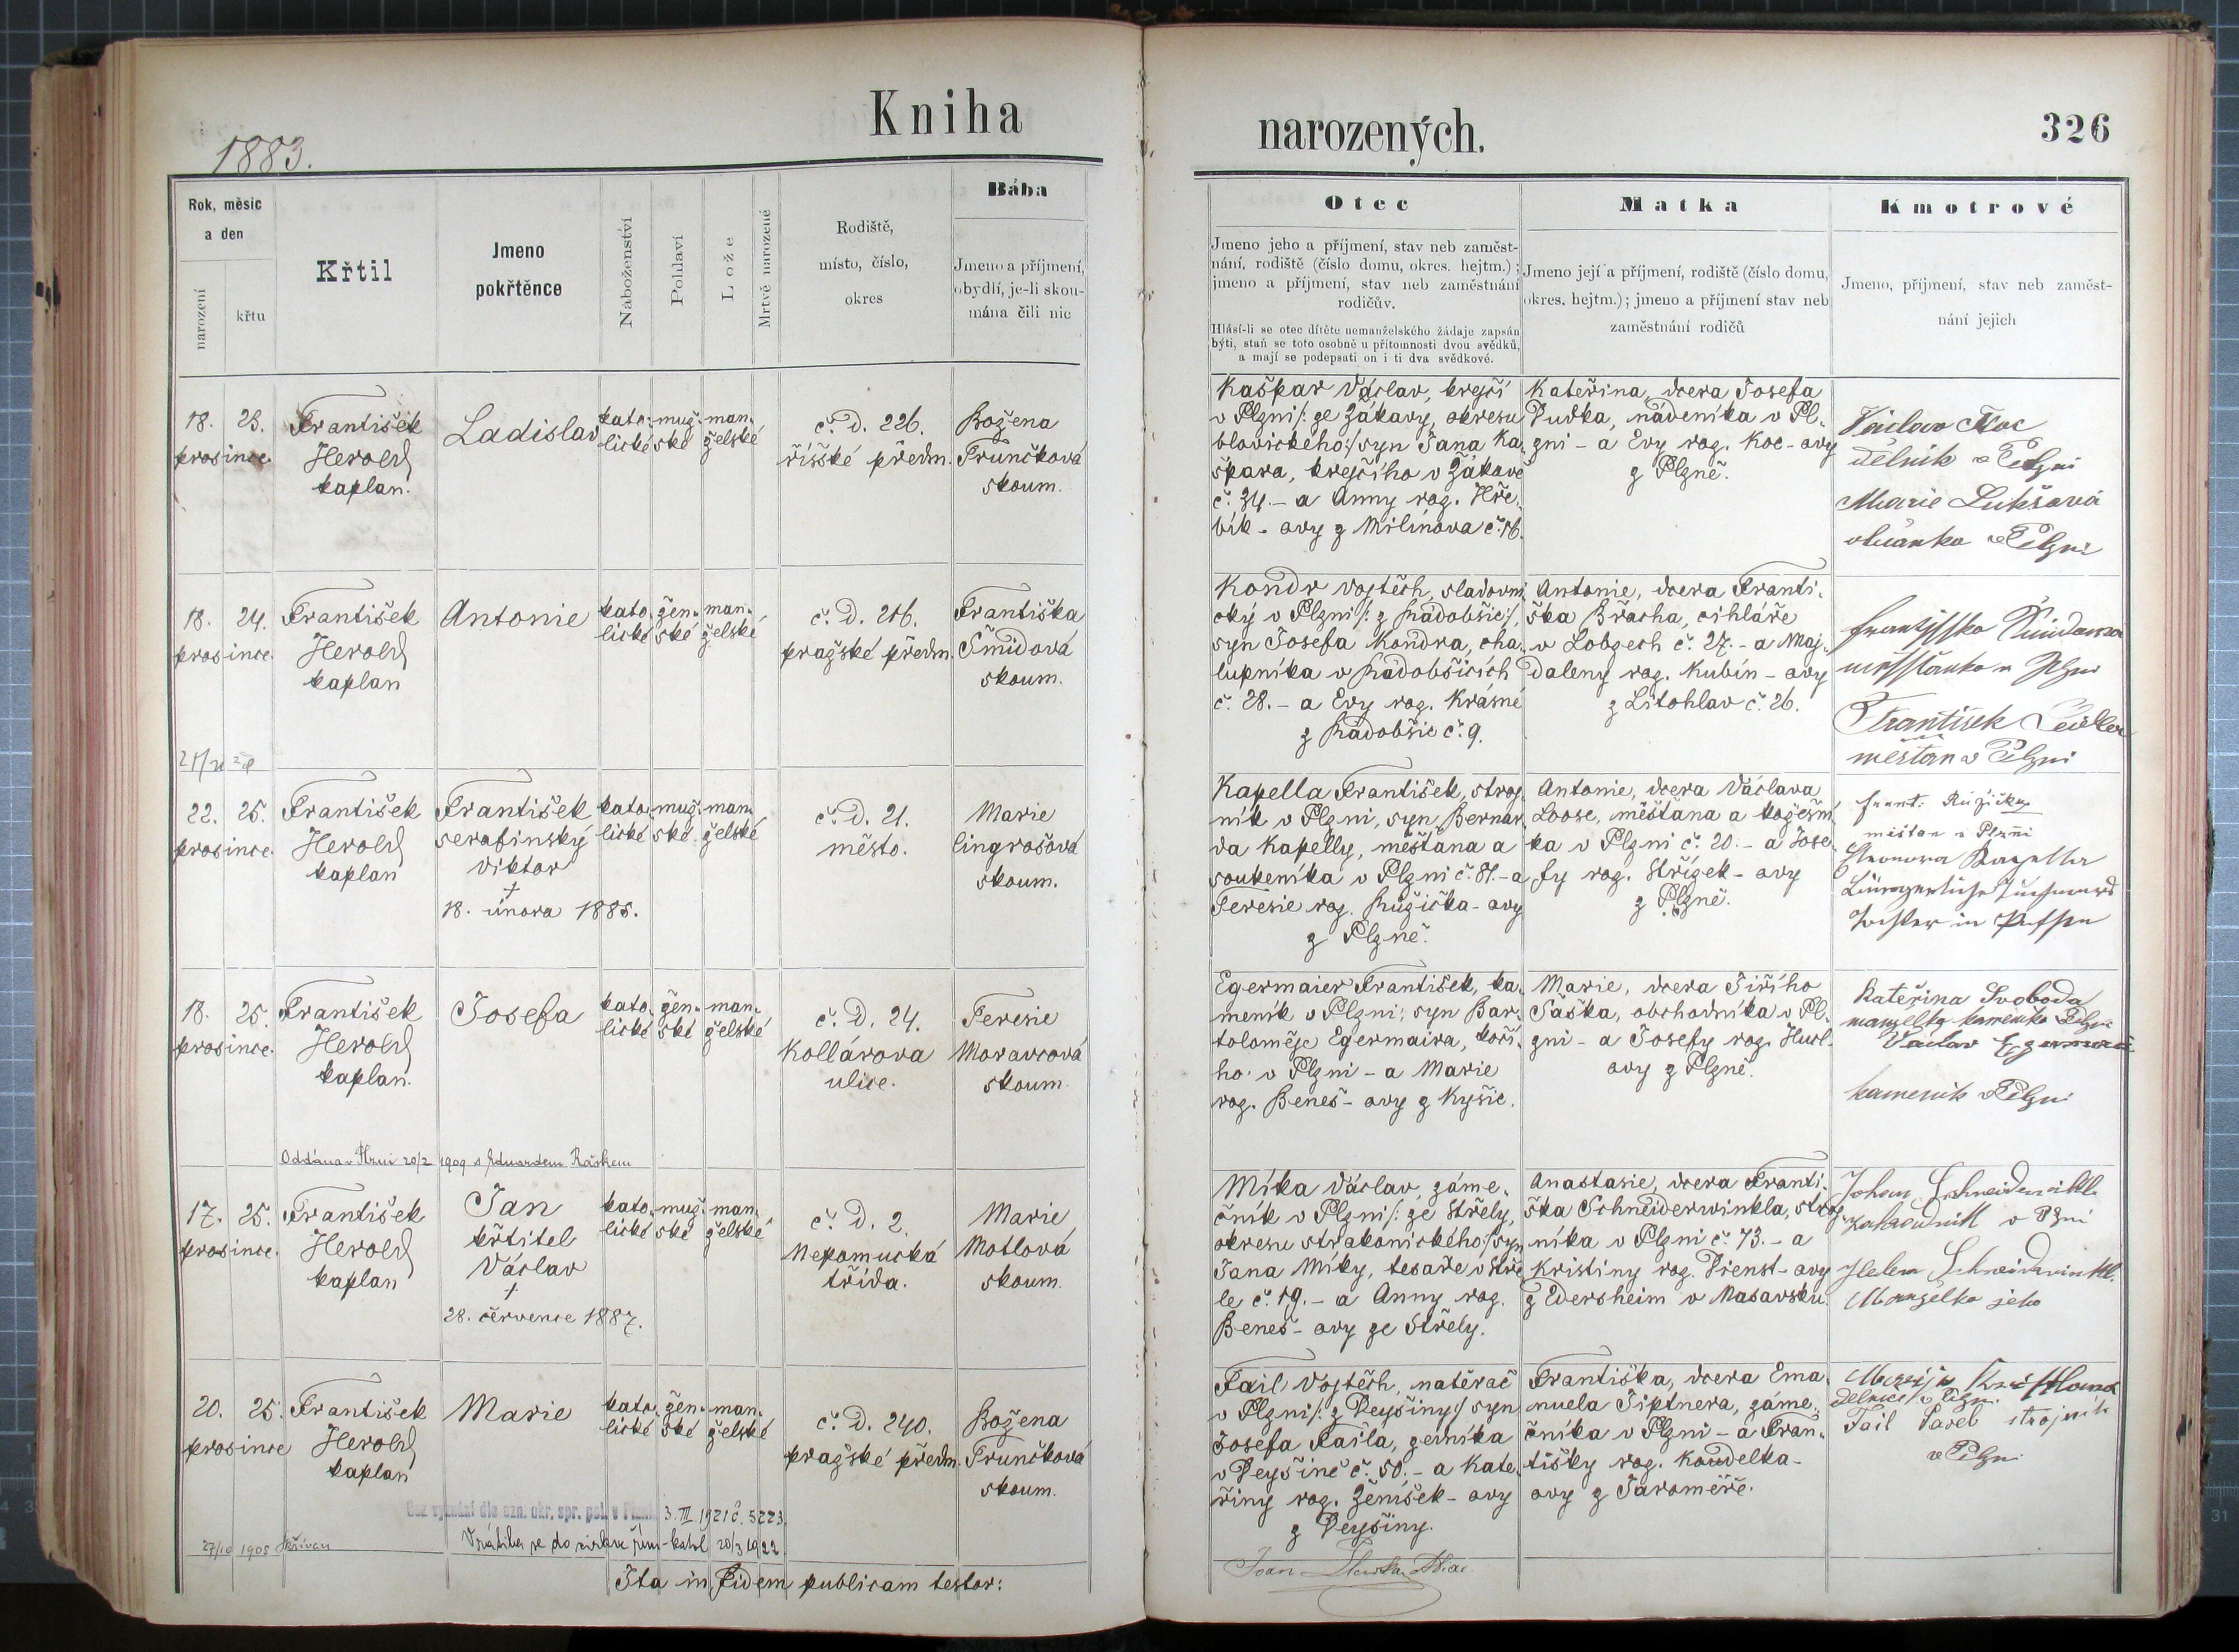 Kniha
narozených.
326
1883.
Rok, měsíc
a den
narození
křtu
Křtil
Jmeno
pokřtěnce
Náboženství
Pohlaví
Lože
Mrtvě narozené
Rodiště,
místo, číslo,
okres
Bába
Jmeno a příjmení,
obydlí, je-li skou-
mána čili nic
Otec
Jmeno jeho a příjmení, stav neb zaměst-
nání, rodiště (číslo domu, okres. hejtm.);
jmeno a příjmení, stav neb zaměstnání
rodičův.
Hlásí-li se otec dítěte nemanželského žádaje zapsán
býti, staň se toto osobně u přítomnosti dvou svědků,
a mají se podepsati on i ti dva svědkové.
Matka
Jmeno její a příjmení, rodiště (číslo domu,
okres. hejtm.); jmeno a příjmení stav neb
zaměstnání rodičů
Kmotrové
Jmeno, příjmení, stav neb zaměst-
nání jejich
18. 23.
prosince.
František
Herold
kaplan.
Ladislav
kato-
lické
muž-
ské
man-
želské
č. D. 226.
říšské předm.
Božena
Trunčková
skoum.
Kašpar Václav, krejčí
v Plzni /: ze Zákavy, okresu
blovického :/ syn Jana Ka-
špara, krejčího v Zákavě
č. 34. - a Anny roz. Hře-
bík - ovy z Milínova č. 16.
Kateřina, dcera Josefa
Dudka, nádeníka v Pl-
zni - a Evy roz. Koc - ovy
z Plzně.
Václav Koc
dělník v Plzni
Marie Lukšová
občanka v Plzni
18. 24.
prosince.
František
Herold
kaplan
Antonie
kato-
lické
žen-
ské
man-
želské
č. D. 216.
pražské předm.
Františka
Šmidová
skoum.
Kondr Vojtěch, sladovni-
cký v Plzni /: z Radobšic :/,
syn Josefa Kondra, cha-
lupníka v Radobšicích
č. 28. - a Evy roz. Krásné
z Radobšic č. 9.
Antonie, dcera Franti-
ška Břacha, cihláře
v Lobzech č. 27. - a Maj-
daleny roz. Kubín - ovy
z Litohlav č. 26.
František
měšťan v Plzni
22. 25.
prosince.
František
Herold
kaplan
František
serafinský
Viktor
†
18. února 1885.
kato-
lické
muž-
ské
man-
želské
č. D. 21.
město.
Marie
Lingrošová
skoum.
Kapella František, stroj-
ník v Plzni, syn Bernar-
da Kapelly, měšťana a
soukeníka v Plzni č. 81. - a
Teresie roz. Růžička - ovy
z Plzně.
Antonie, dcera Václava
Loose, měšťana a kožešní-
ka v Plzni č. 20. - a Jose-
fy roz. Střízek - ovy
z Plzně.
Frant. Růžička
měšťan v Plzni
Eleonora Kapeller
18. 25.
prosince.
František
Herold
kaplan.
Josefa
kato-
lické
žen-
ské
man-
želské
č. D. 24.
Kollárova
ulice.
Teresie
Moravcová
skoum.
Egermaier František, ka-
meník v Plzni; syn Bar-
toloměje Egermaira, koči-
ho v Plzni - a Marie
roz. Beneš - ovy z Kyšic.
Marie, dcera Jiřího
Šaška, obchodníka v Pl-
zni - a Josefy roz. Hucl-
ovy z Plzně.
Kateřina Svoboda
manželka kameníka Plzni
Václav
kameník v Plzni
Oddána v Plzni 20/2 1909 s Eduardem Ráškem
17. 25.
prosince.
František
Herold
kaplan
Jan
křtitel
Václav
†
28. července 1887.
kato-
lické
muž-
ské
man-
želské
č. D. 2.
Nepomucká
třída.
Marie
Motlová
skoum.
Míka Václav, záme-
čník v Plzni /: ze Střely,
okresu strakonického :/ syn
Jana Míky, tesaře v Stře-
le č. 19. - a Anny roz.
Beneš - ovy ze Střely.
Anastasie, dcera Franti-
ška Schneiderwinkla, stroj-
níka v Plzni č. 73. - a
Kristiny roz. Dienst - ovy
z Edersheim v Nasavsku.
Johan Schneiderwinkl
v Plzni
Helen Schneiderwinkl
Manželka jeho
20. 25.
prosince
František
Herold
kaplan
Marie
kato-
lické
žen-
ské
man-
želské
č. D. 240.
pražské předm.
Božena
Trunčková
skoum.
Fail Vojtěch, natěrač
v Plzni /: z Dejšiny :/ syn
Josefa Faila, zedníka
v Dejšině č. 50. - a Kate-
řiny roz. Ženíšek - ovy
z Dejšiny.
Františka, dcera Ema-
nuela Tiptnera, záme-
čníka v Plzni - a Fran-
tišky roz. Koudelka -
ovy z Jaroměře.
Fail Pavel strojník
v Plzni
Bez vyznání dle ozn. okr. spr. pol. v Plzni 3. III. 1921 č. 5223.
Vrátila se do církve řím-katol 20/3 1922
27/10 1905 Skřivan
Ita in fidem publicam testor: